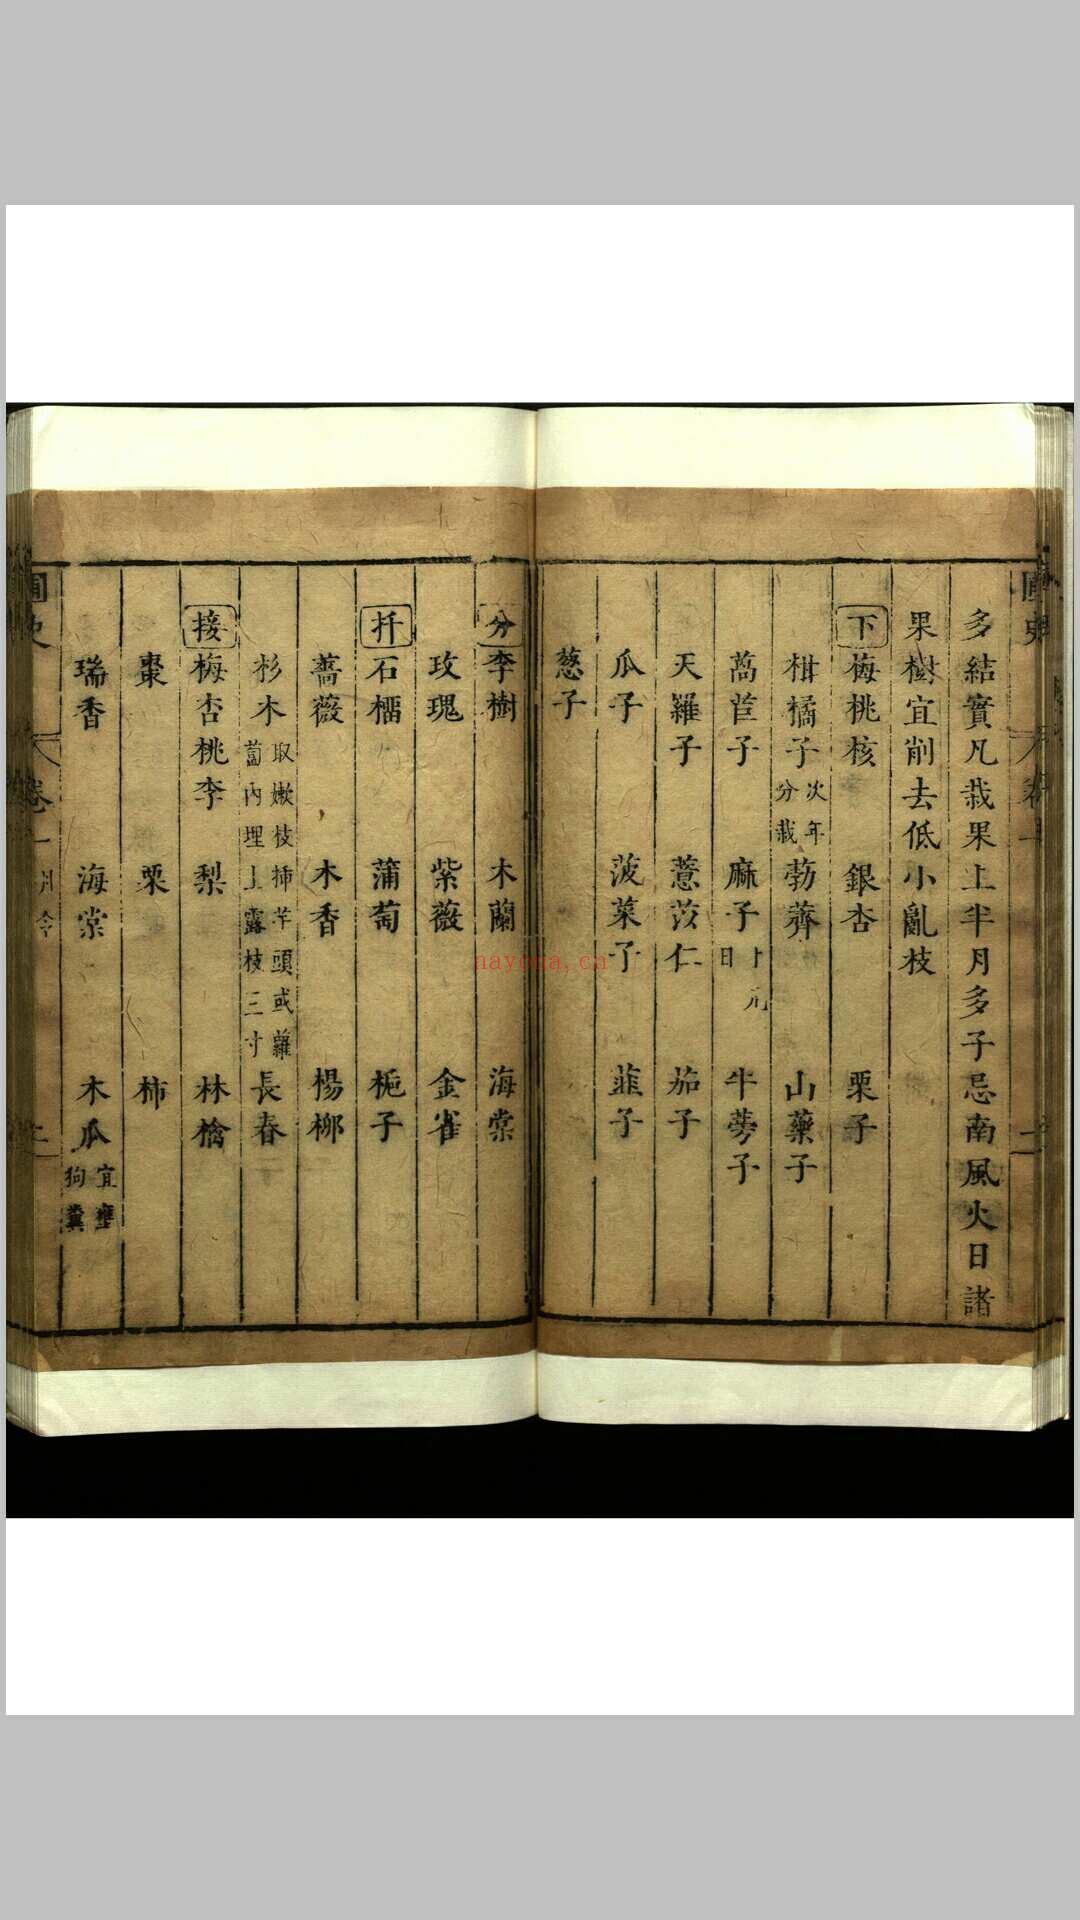 多結實凡栽果上半月多子忌南風火日諸
果樹宜削去低小亂枝
下 梅桃核 銀杏 栗子
柑橘子 次年分栽 葧薺 山藥子
萵苣子 麻子 牛蒡子
天羅子 薏苡仁 茄子
瓜子 菠菜子 韮子
葱子
分 李樹 木蘭 海棠
玫瑰 紫薇 金雀
扦 石橊 蒲萄 梔子
薔薇 木香 楊柳
杉木 取嫩枝揷芋頭或蘿蔔內埋土露枝三寸 長春
接 梅杏桃李 梨 林檎
棗 栗 柿
瑞香 海棠 木瓜 宜壅狗糞
卷一
nayona.cn